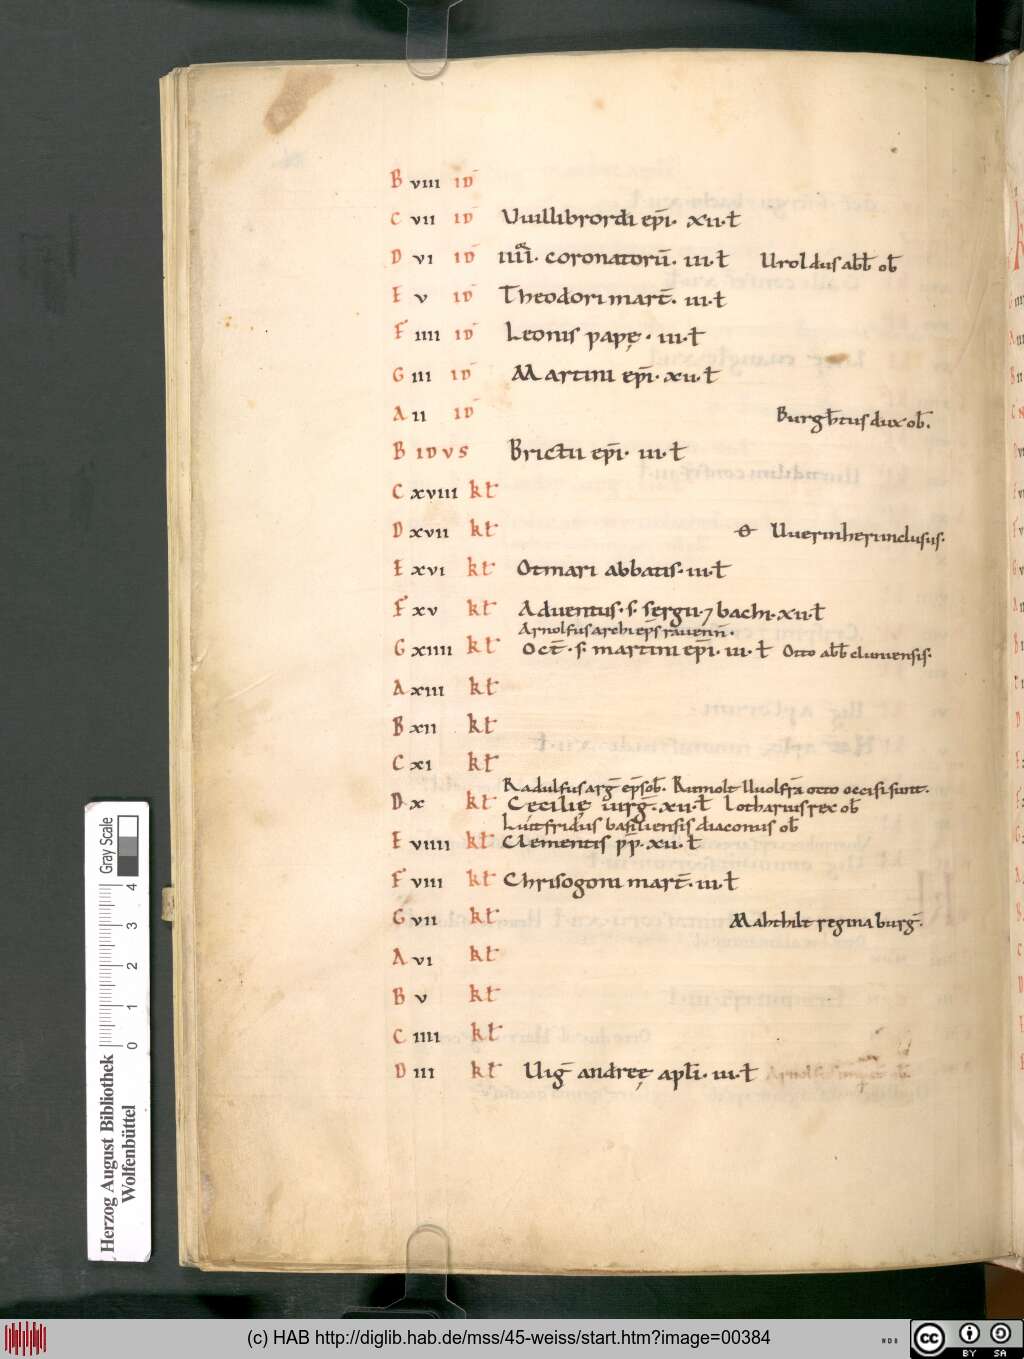 B viii id̄
C vii id̄ Uuillibrordi ep̄i. xii. ł
D vi id̄ iiiiᵒʳ. coronatorū. iii. ł Uroldus abb̄ ob̄
E v id̄ Theodori mart̄. iii. ł
F iiii id̄ Leonis papę. iii. ł
G iii id̄ Martini ep̄i. xii. ł
A ii id̄ Burgh̄tus dux ob̄.
B IDVS Brictii ep̄i. iii. ł
C xviii kł
D xvii kł Uuerinheri inclusus.
E xvi kł Otmari abbatis. iii. ł
F xv kł Aduentus. s. sergii. ⁊ bachi. xii. ł
Arnolfus archiep̄s rauenn̄.
G xiiii kł Oct̄. s. martini ep̄i. iii. ł Otto abb̄ cluniensis.
A xiii kł
B xii kł
C xi kł
Radulfus arḡ ep̄s ob̄. Rumolt Uuolfrā otto occisi sunt.
D x kł Cecilię uirḡ. xii. ł Lotharius rex ob̄
Liutfridus basiliensis diaconus ob̄
E viiii kł Clementis pp̄. xii. ł
F viii kł Chrisogoni mart̄. iii. ł
G vii kł Mahthilt regina burḡ.
A vi kł
B v kł
C iiii kł
D iii kł Uiḡ andreę apłi. iii. ł
Herzog August Bibliothek
Wolfenbüttel
Gray Scale
0 1 2 3 4
(c) HAB http://diglib.hab.de/mss/45-weiss/start.htm?image=00384
WDB
cc BY SA